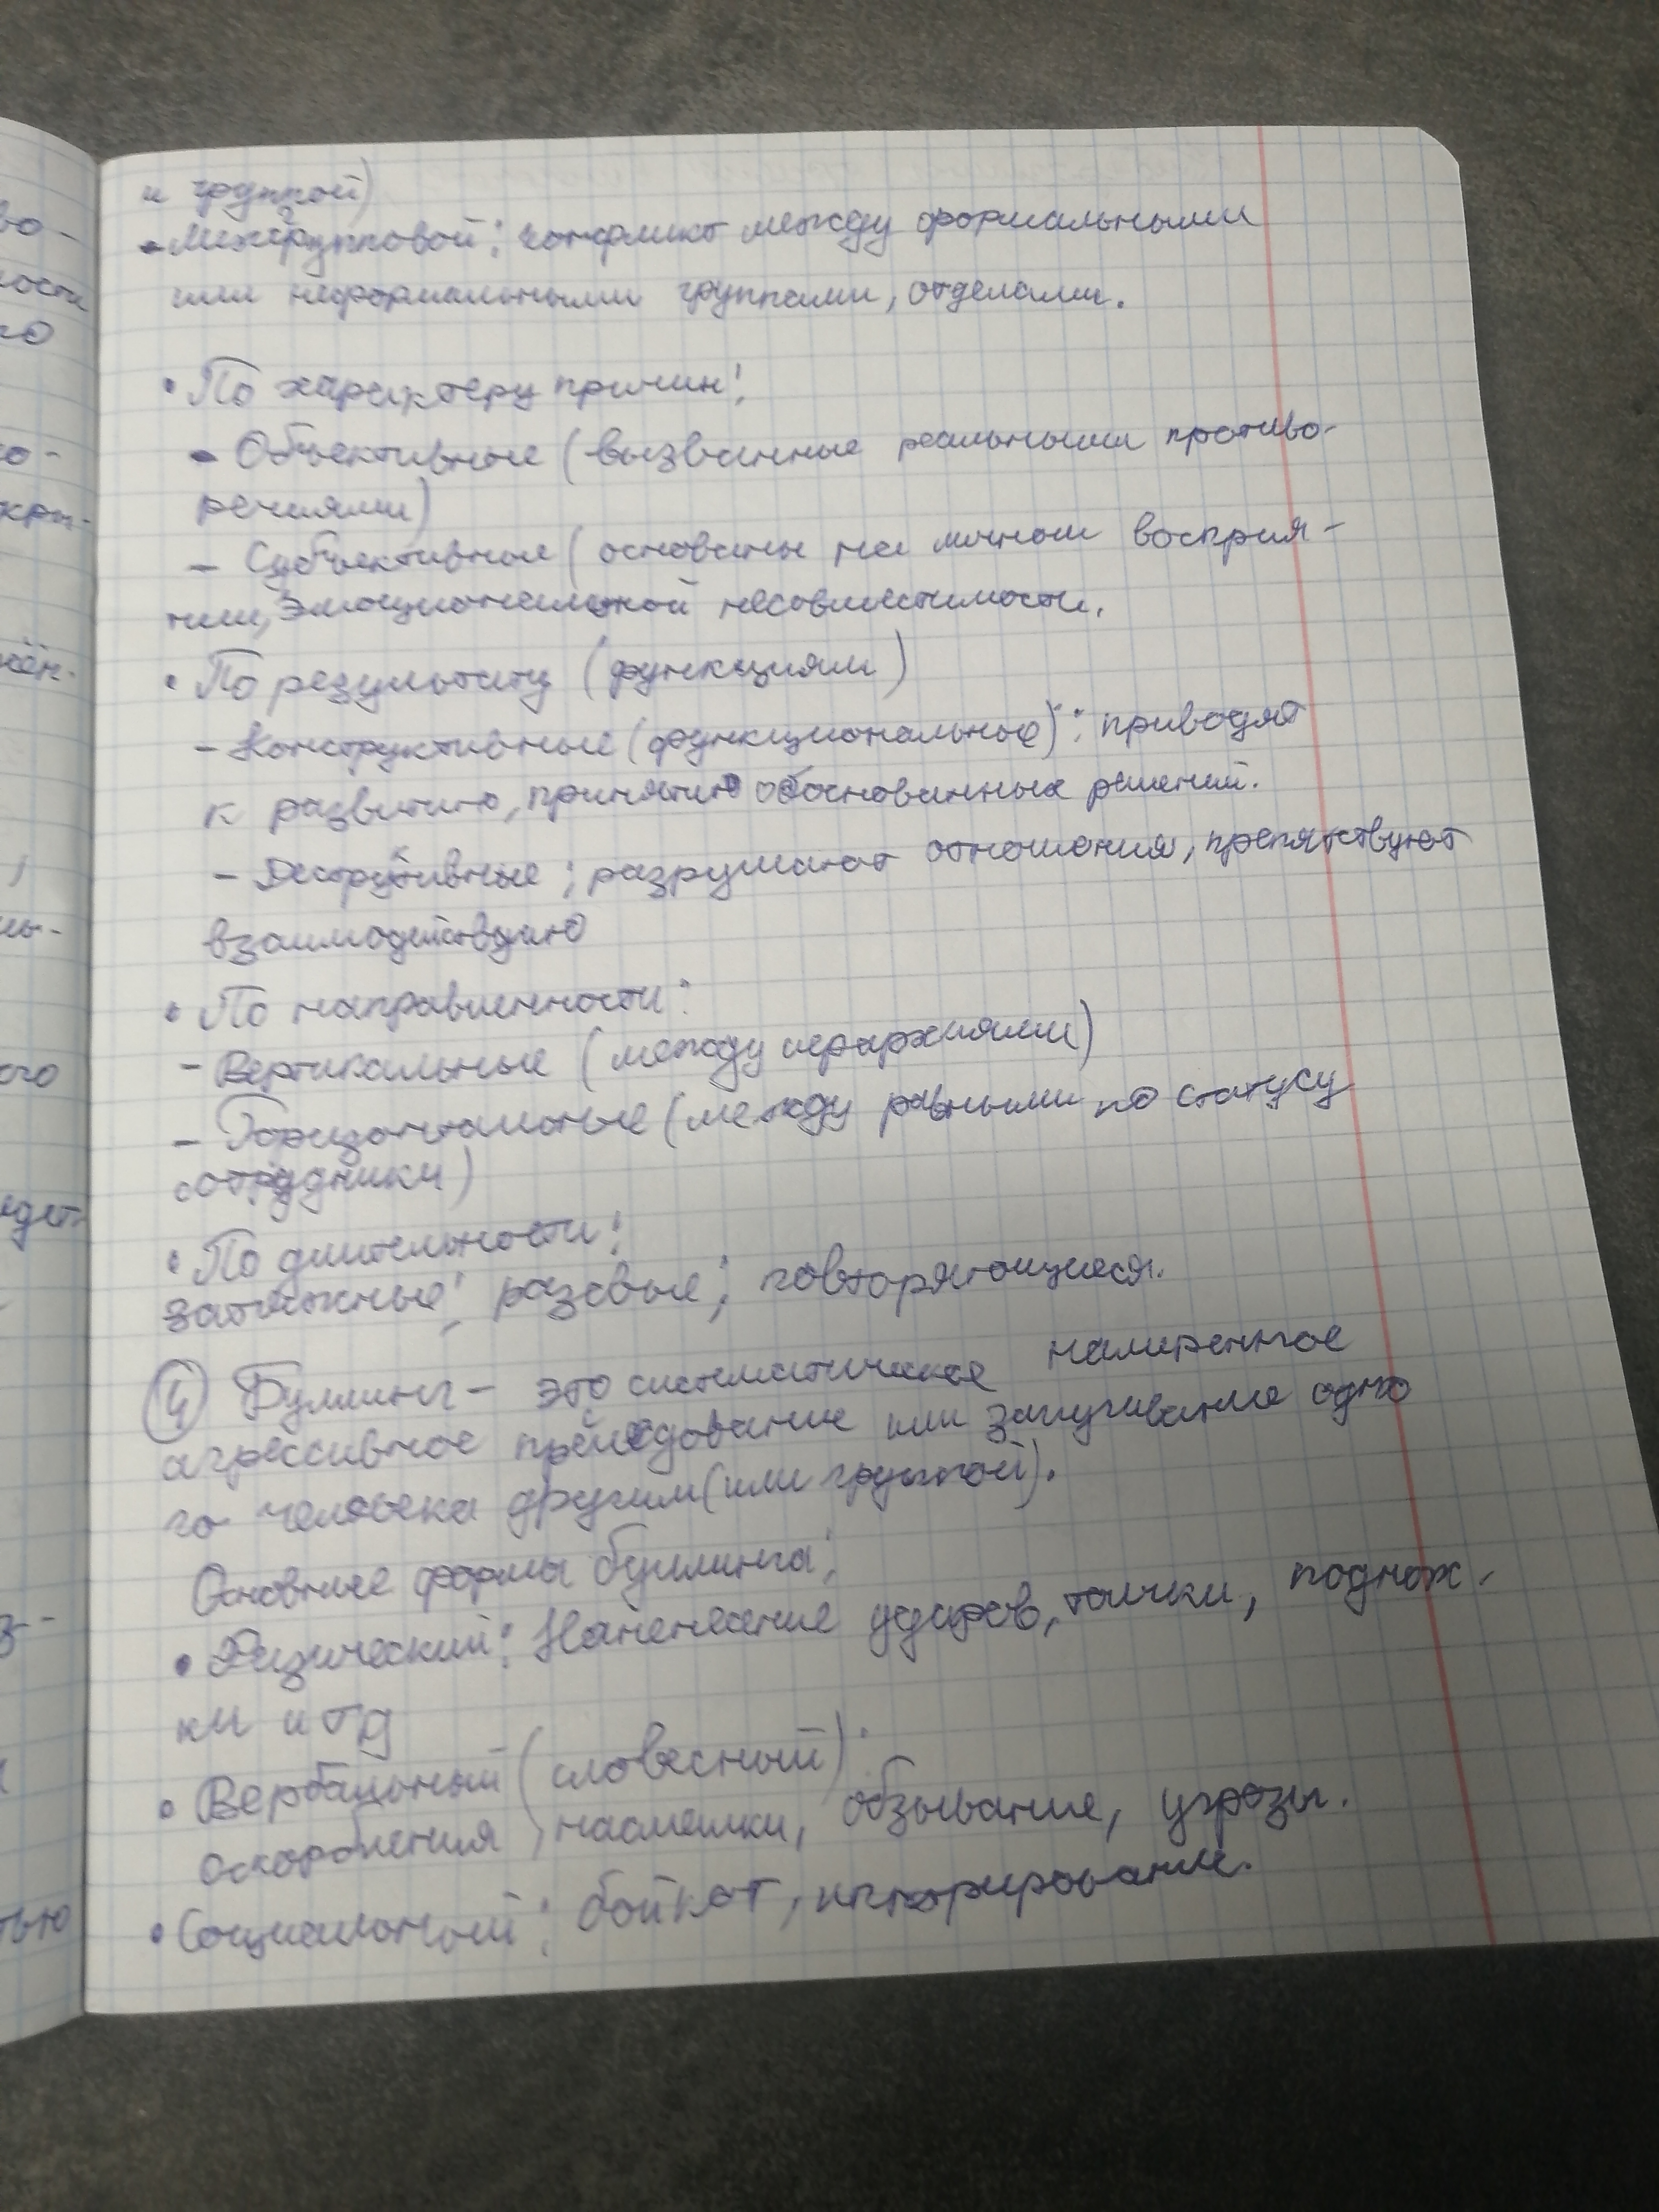 и группой)
- Межгрупповой: конфликт между формальными
или неформальными группами, отделами.
• По характеру причин:
- Объективные (вызванные реальными противо-
речиями)
- Субъективные (основаны на личном восприя-
тии, эмоциональной несовместимости.
• По результату (функциям)
- Конструктивные (функциональные): приводят
к развитию, принятию обоснованных решений.
- Деструктивные: разрушают отношения, препятствуют
взаимодействию
• По направленности:
- Вертикальные (между иерархиями)
- Горизонтальные (между равными по статусу
сотрудники)
• По длительности:
затяжные; разовые; повторяющиеся.
④ Буллинг - это систематическое намеренное
агрессивное преследование или запугивание одно
го человека другим (или группой).
Основные формы буллинга:
• Физический: Наненесение ударов, толчки, поднож-
ки и тд
• Вербальный (словесный):
оскорбления, насмешки, обзывание, угрозы.
• Социальный: бойкот, игнорирование.